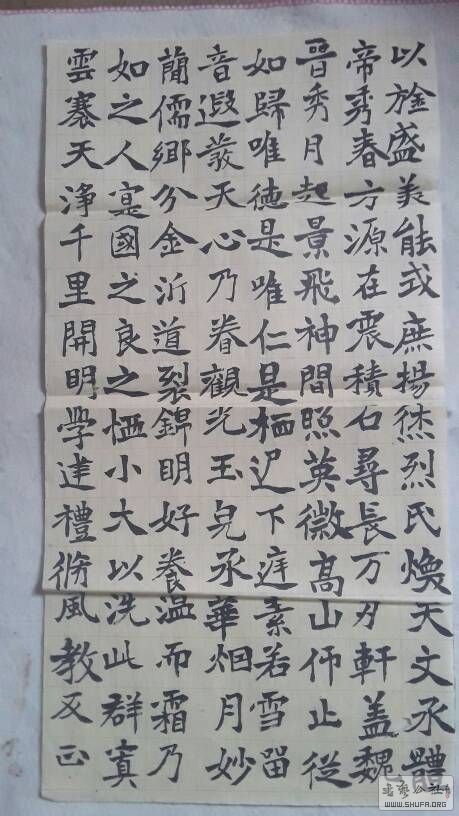 以旌盛美能式庶揚烋烈氏煥天文承體
帝秀春方源在震積石尋長万刃軒蓋魏
晉秀月起景飛神間照英徽高山仰止從
如歸唯德是唯仁是栖迟下庭素若雪留
音遐發天心乃眷觀光玉皃承華烟月妙
蘭儒鄉分金沂道裂錦明好養温而霜乃
如之人寔國之良之恤小大以洗此群寞
雲褰天淨千里開明學建禮脩風教反正
WWW.SHUFA.ORG